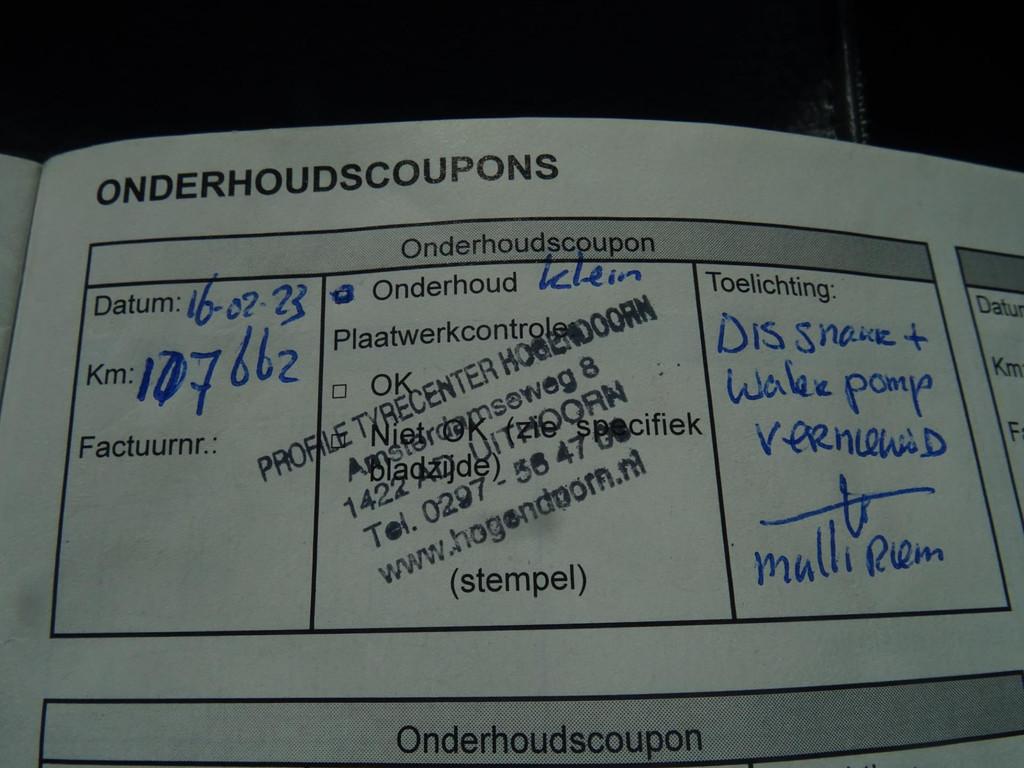 ONDERHOUDSCOUPONS
Onderhoudscoupon
Datum: 16-02-23
Km: 107662
Factuurnr.:
Onderhoud klein
Plaatwerkcontrole
□ OK
□ Niet OK (zie specifiek
bladzijde)
PROFILE TYRECENTER HOGENDOORN
Amsterdamseweg 8
1422 UITHOORN
Tel. 0297 - 56 47
www.hogendoorn.nl
(stempel)
Toelichting:
DIS snaar +
water pomp
vernieuwd
multi Riem
Datum
Km
Onderhoudscoupon